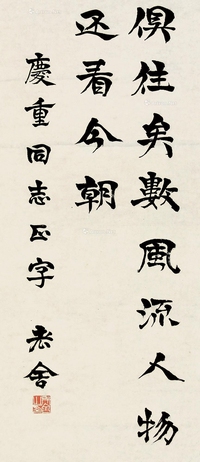 俱往矣數風流人物
还看今朝
慶重同志正字 老舍